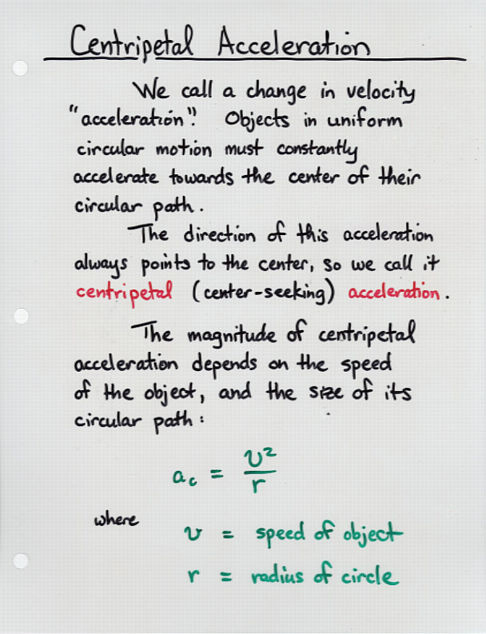 Centripetal Acceleration
We call a change in velocity
"acceleration". Objects in uniform
circular motion must constantly
accelerate towards the center of their
circular path.
The direction of this acceleration
always points to the center, so we call it
centripetal (center-seeking) acceleration.
The magnitude of centripetal
acceleration depends on the speed
of the object, and the size of its
circular path:
a_c = v²/r
where
v = speed of object
r = radius of circle